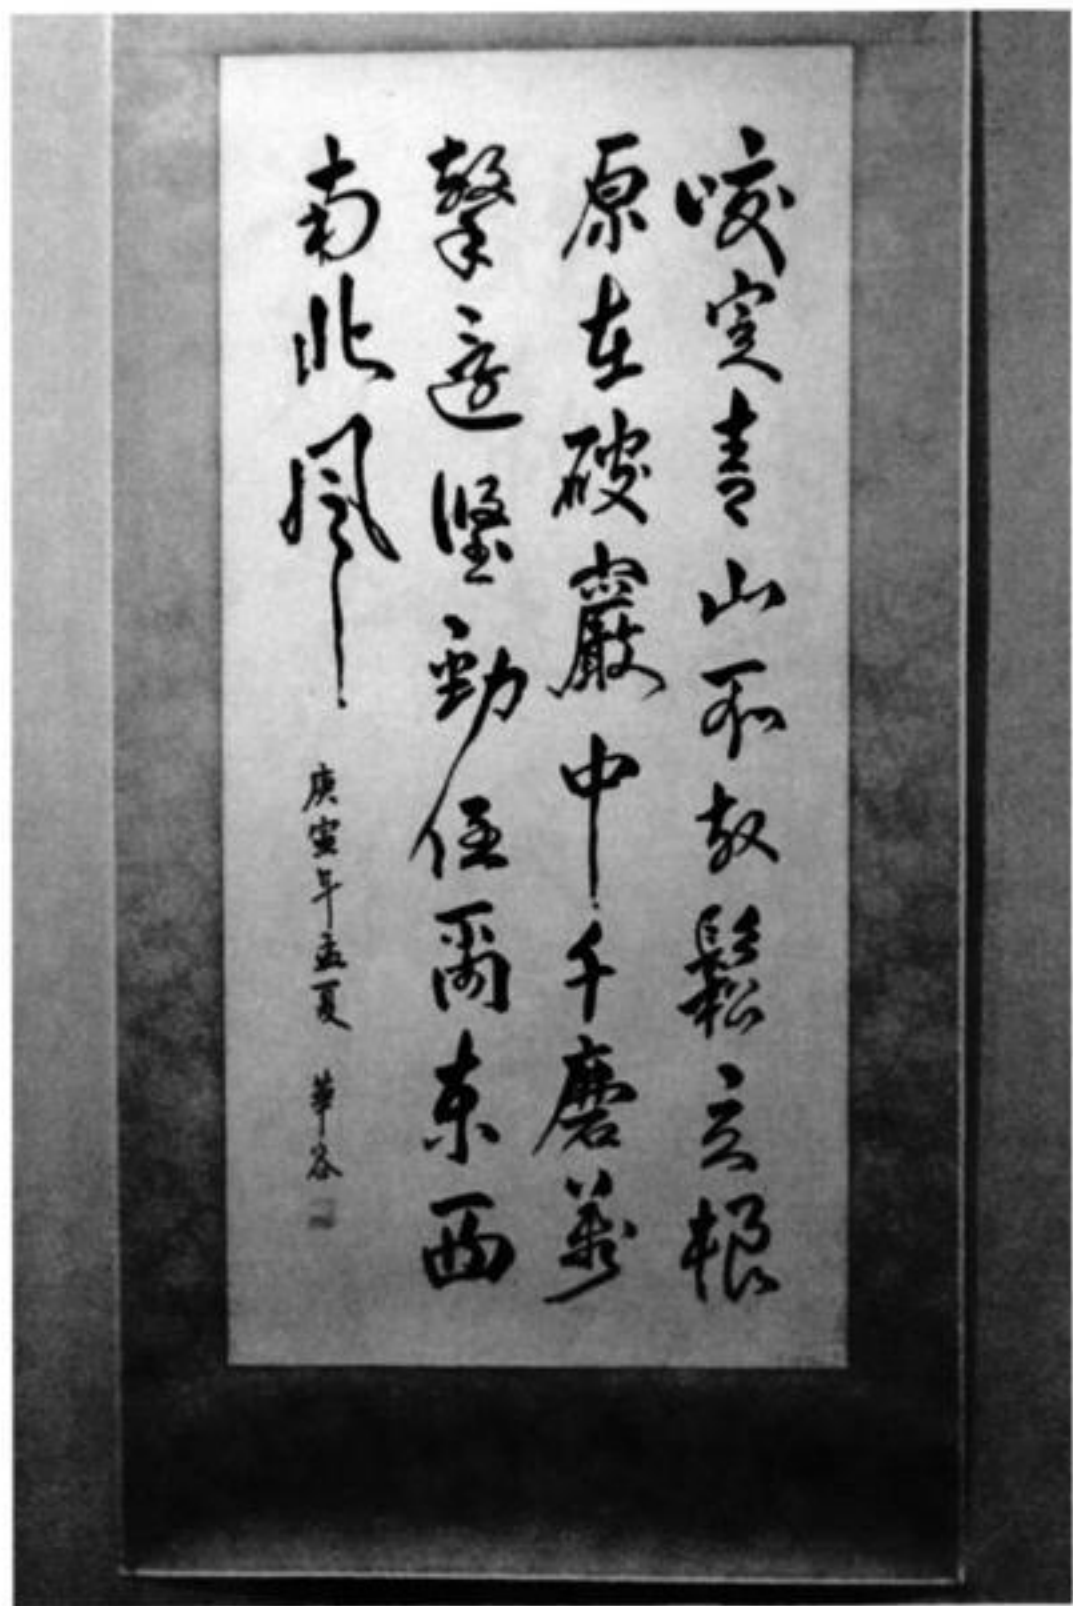 咬定青山不放鬆立根
原在破巖中千磨萬
擊還堅勁任爾東西
南北風
庚寅年孟夏 華谷